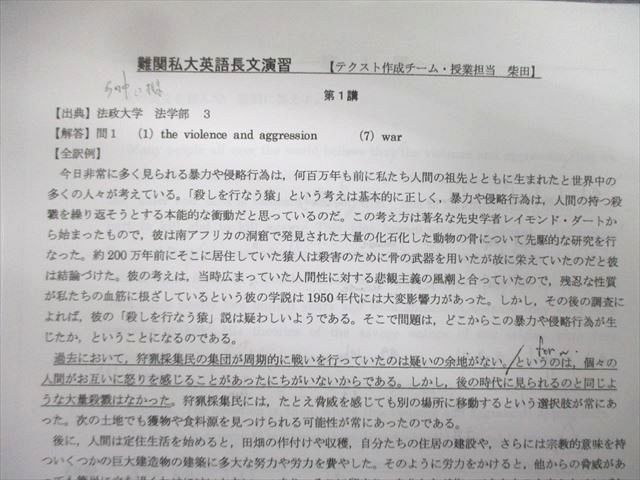 難関私大英語長文演習 【テクスト作成チーム・授業担当 柴田】
第1講
【出典】法政大学 法学部 3
【解答】問1 (1) the violence and aggression (7) war
【全訳例】
今日非常に多く見られる暴力や侵略行為は、何百万年も前に私たち人間の祖先とともに生まれたと世界中の
多くの人々が考えている。「殺しを行なう猿」という考えは基本的に正しく、暴力や侵略行為は、人間の持つ殺
戮を繰り返そうとする本能的な衝動だと思っているのだ。この考え方は著名な先史学者レイモンド・ダートか
ら始まったもので、彼は南アフリカの洞窟で発見された大量の化石化した動物の骨について先駆的な研究を行
なった。約200万年前にそこに居住していた猿人は殺害のために骨の武器を用いたが故に栄えていたのだと彼
は結論づけた。彼の考えは、当時広まっていた人間性に対する悲観主義の風潮と合っていたので、残忍な性質
が私たちの血筋に根ざしているという彼の学説は1950年代には大変影響力があった。しかし、その後の調査に
よれば、彼の「殺しを行なう猿」説は疑わしいようである。そこで問題は、どこからこの暴力や侵略行為が生
じたか、ということになるのである。
for~
過去において、狩猟採集民の集団が周期的に戦いを行っていたのは疑いの余地がない。というのは、個々の
人間がお互いに怒りを感じることがあったにちがいないからである。しかし、後の時代に見られるのと同じよ
うな大量殺戮はなかった。狩猟採集民には、たとえ脅威を感じても別の場所に移動するという選択肢が常にあ
った。次の土地でも獲物や食料源を見つけられる可能性が常にあったのである。
後に、人間は定住生活を始めると、田畑の作付けや収穫、自分たちの住居の建設や、さらには宗教的意味を持
ついくつかの巨大建造物の建築に多大な努力や労力を費やした。そのように労力をかけると、他からの脅威があ